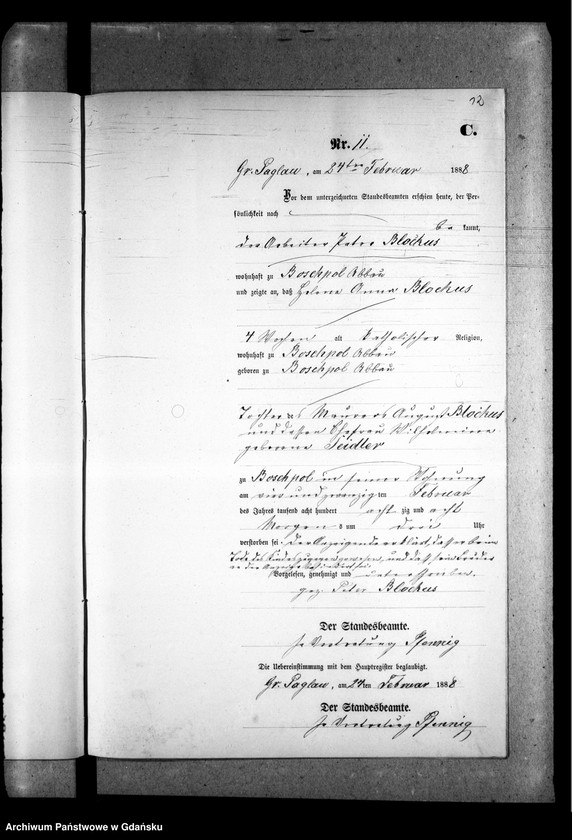 12
C.
Nr. 11.
Gr. Paglau, am 24ten Februar 1888
Vor dem unterzeichneten Standesbeamten erschien heute, der Per-
sönlichkeit nach
be kannt,
der Arbeiter Peter Blockus
wohnhaft zu Boschpol Abbau
und zeigte an, daß Helene Anna Blockus
4 Wochen alt katholischer Religion,
wohnhaft zu Boschpol Abbau
geboren zu Boschpol Abbau
Tochter des Maurers August Blockus
und dessen Ehefrau Wilhelmine
geborene Teidler
zu Boschpol in seiner Wohnung
am vier und zwanzig ten Februar
des Jahres tausend acht hundert acht zig und acht
Morgens um drei Uhr
verstorben sei. Der Anzeigende erklärt, daß er beim
Tode des Kindes zugegen gewesen, und daß sein Bruder
an der Anzeige
Vorgelesen, genehmigt und unterschrieben.
gez. Peter Blockus
Der Standesbeamte.
In Vertretung Pfennig
Die Uebereinstimmung mit dem Hauptregister beglaubigt.
Gr. Paglau, am 24ten Februar 1888
Der Standesbeamte.
In Vertretung Pfennig
Archiwum Państwowe w Gdańsku